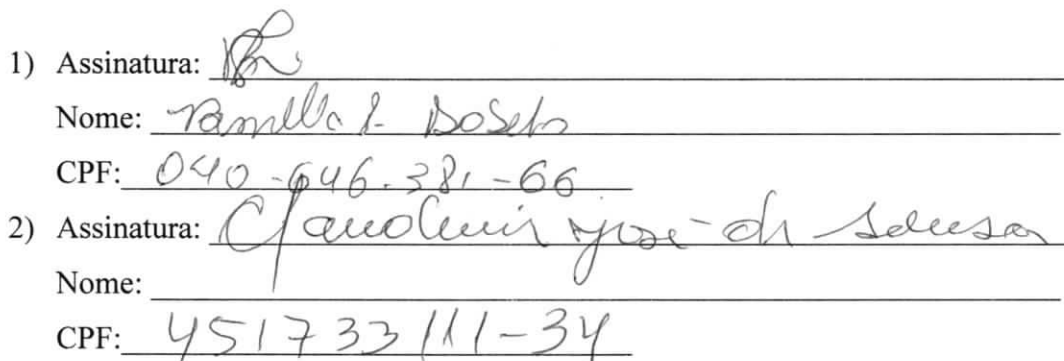 1) Assinatura:
Nome: Pamella
CPF: 040.646.381-66
2) Assinatura: Claudemir José de Sousa
Nome:
CPF: 451733111-34